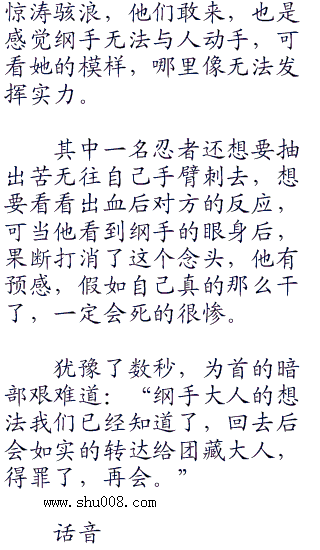 惊涛骇浪，他们敢来，也是
感觉纲手无法与人动手，可
看她的模样，哪里像无法发
挥实力。
其中一名忍者还想要抽
出苦无往自己手臂刺去，想
要看看出血后对方的反应，
可当他看到纲手的眼身后，
果断打消了这个念头，他有
预感，假如自己真的那么干
了，一定会死的很惨。
犹豫了数秒，为首的暗
部艰难道：“纲手大人的想
法我们已经知道了，回去后
会如实的转达给团藏大人，
得罪了，再会。”
www.shu008.com
话音